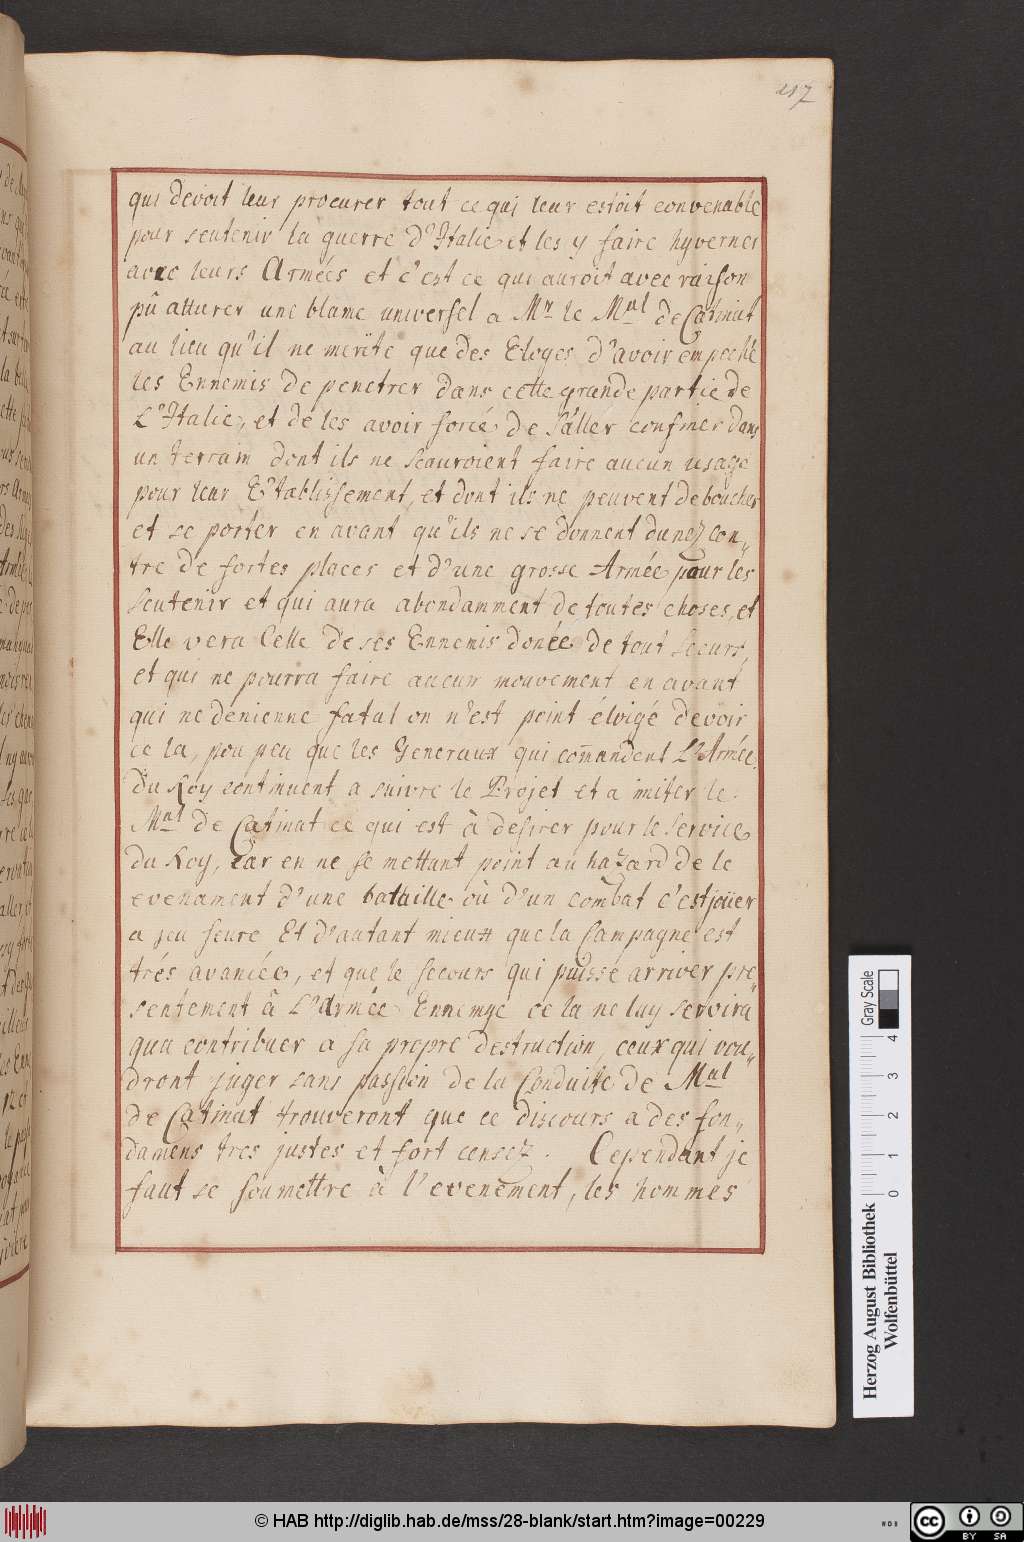 217
qui devoit leur procurer tout ce qui leur estoit convenable
pour soutenir la guerre d'Italie et les y faire hyverner
avec leurs Armées et c'est ce qui auroit avec raison
pû attirer une blame universel a Mr le Mal de Catinat
au lieu qu'il ne merite que des Eloges d'avoir empeché
les Ennemis de penetrer dans cette grande partie de
L'Italie, et de les avoir forcé de s'aller confiner dans
un terrain dont ils ne scauroient faire aucun usage
pour leur Etablissement, et dont ils ne peuvent deboucher
et se porter en avant qu'ils ne se donnent du nez con„
tre de fortes places et d'une grosse Armée pour les
soutenir et qui aura abondamment de toutes choses, et
Elle vera Celle de ses Ennemis donée de tout securs,
et qui ne pourra faire aucun mouvement en avant
qui ne denienne fatal on n'est point éloigé devoir
ce la, pou peu que les Generaux qui com̄andent L'Armée
du Roy continuent a suivre le Projet et a imiter le
Mal de Catinat ce qui est à desirer pour le service
du Roy, Car en ne se mettant point au hazard de le
evenament d'une bataille où d'un combat c'est joüer
a jeu seure Et d'autant mieux que la Campagne est
trés avancée, et que le secours qui puisse arriver pre„
sentement à L'Armée Ennemye ce la ne luy servira
qua contribuer a sa propre destruction, ceux qui vou„
dront juger sans passion de la Conduite de Mal
de Catinat trouveront que ce discours a des fon„
damens tres justes et fort censez. Cependant je
faut se soumettre à l'evenement, les hommes
Herzog August Bibliothek
Wolfenbüttel
Gray Scale
0 1 2 3 4
© HAB http://diglib.hab.de/mss/28-blank/start.htm?image=00229
WDB
cc BY SA